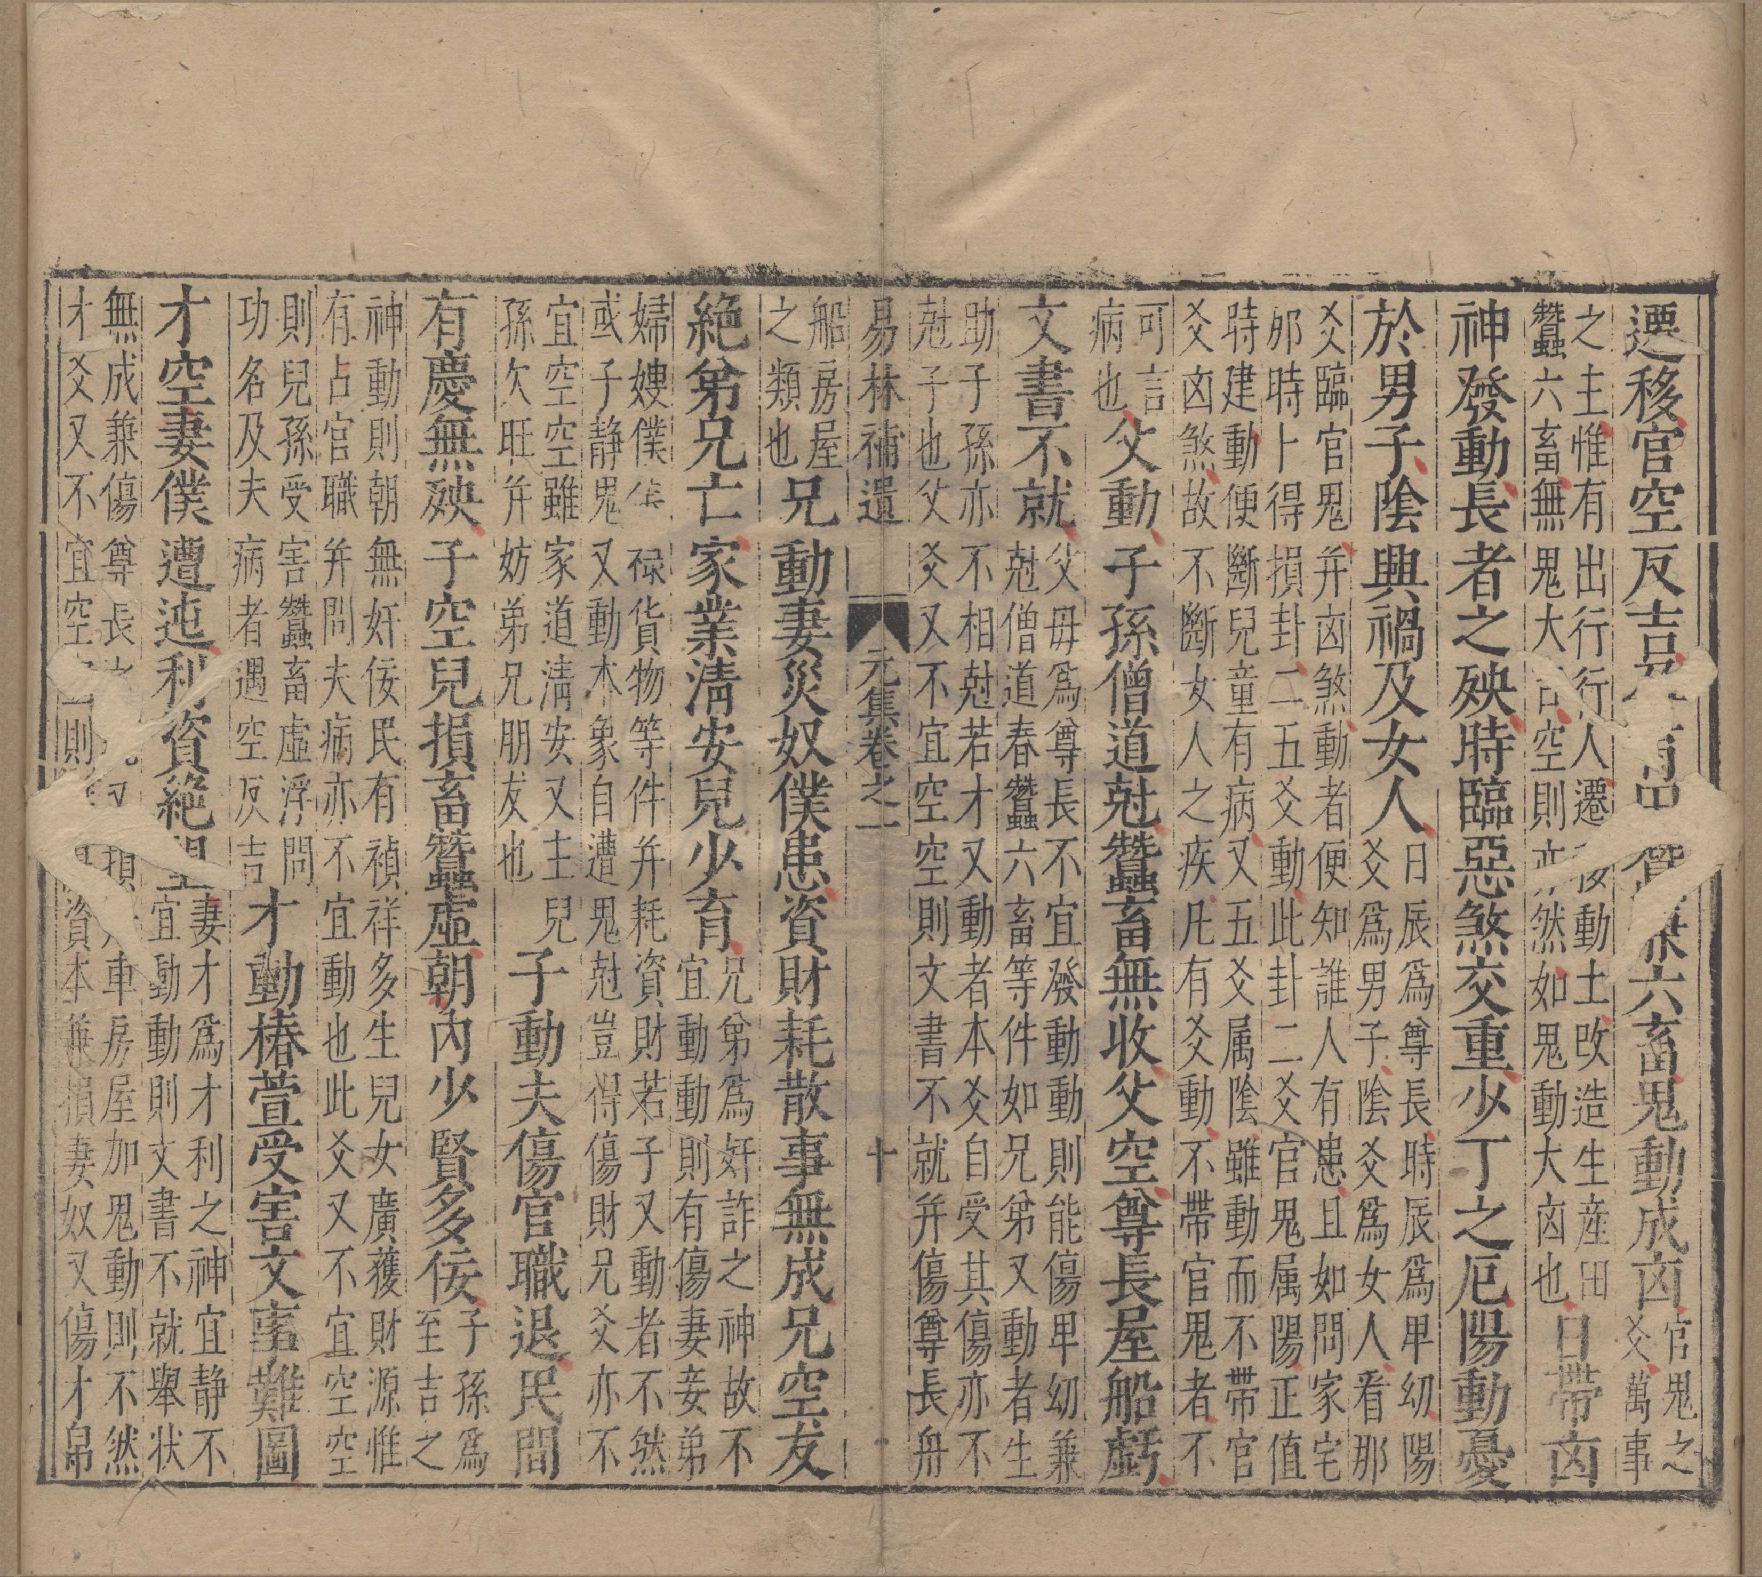 遷移官空反吉六畜鬼動成凶
官鬼之
爻萬事
之主惟有出行行人遷移動土改造生產田
蠶六畜無鬼大吉空則亦然如鬼動大凶也
日帶凶
神發動長者之殃時臨惡煞交重少丁之厄陽動憂
於男子陰興禍及女人
日辰為尊長時辰為卑幼陽
爻為男子陰爻為女人看那
爻臨官鬼并凶煞動者便知誰人有患且如問家宅
邜時卜得損卦二五爻動此卦二爻官鬼属陽正值
時建動便斷兒童有病又五爻属陰雖動而不帶官
爻凶煞故不斷女人之疾凡有爻動不帶官鬼者不
可言
病也
父動子孫僧道尅蠶畜無收父空尊長屋船虧
文書不就
父母為尊長不宜發動動則能傷卑幼兼
尅僧道春蠶六畜等件如兄弟又動者生
助子孫亦不相尅若才又動者本爻自受其傷亦不
尅子也父爻又不宜空空則文書不就并傷尊長舟
易林補遺 元集卷之一 十
船房屋
之類也
兄動妻災奴僕患資財耗散事無成兄空友
絶弟兄亡家業淸安兒少育
兄弟為奸詐之神故不
宜動動則有傷妻妾弟
婦嫂僕祿貨物等件并耗資財若子又動者不然
或子静鬼又動本象自遭鬼尅豈得傷財兄爻亦不
宜空空雖家道淸安又主兒
孫欠旺并妨弟兄朋友也
子動夫傷官職退民間
有慶無殃子空兒損畜蠶虛朝內少賢多佞
子孫為
至吉之
神動則朝無奸佞民有禎祥多生兒女廣獲財源惟
有占官職并問夫病亦不宜動也此爻又不宜空空
則兒孫受害蠶畜虛浮問
功名及夫病者遇空反吉
才動椿萱受害文書難圖
才空妻僕遭迍利資絶望
妻才為才利之神宜静不
宜動動則文書不就舉狀
無成兼傷尊長損車房屋加鬼動則不然
才爻又不宜空則資本兼損妻奴又傷才帛